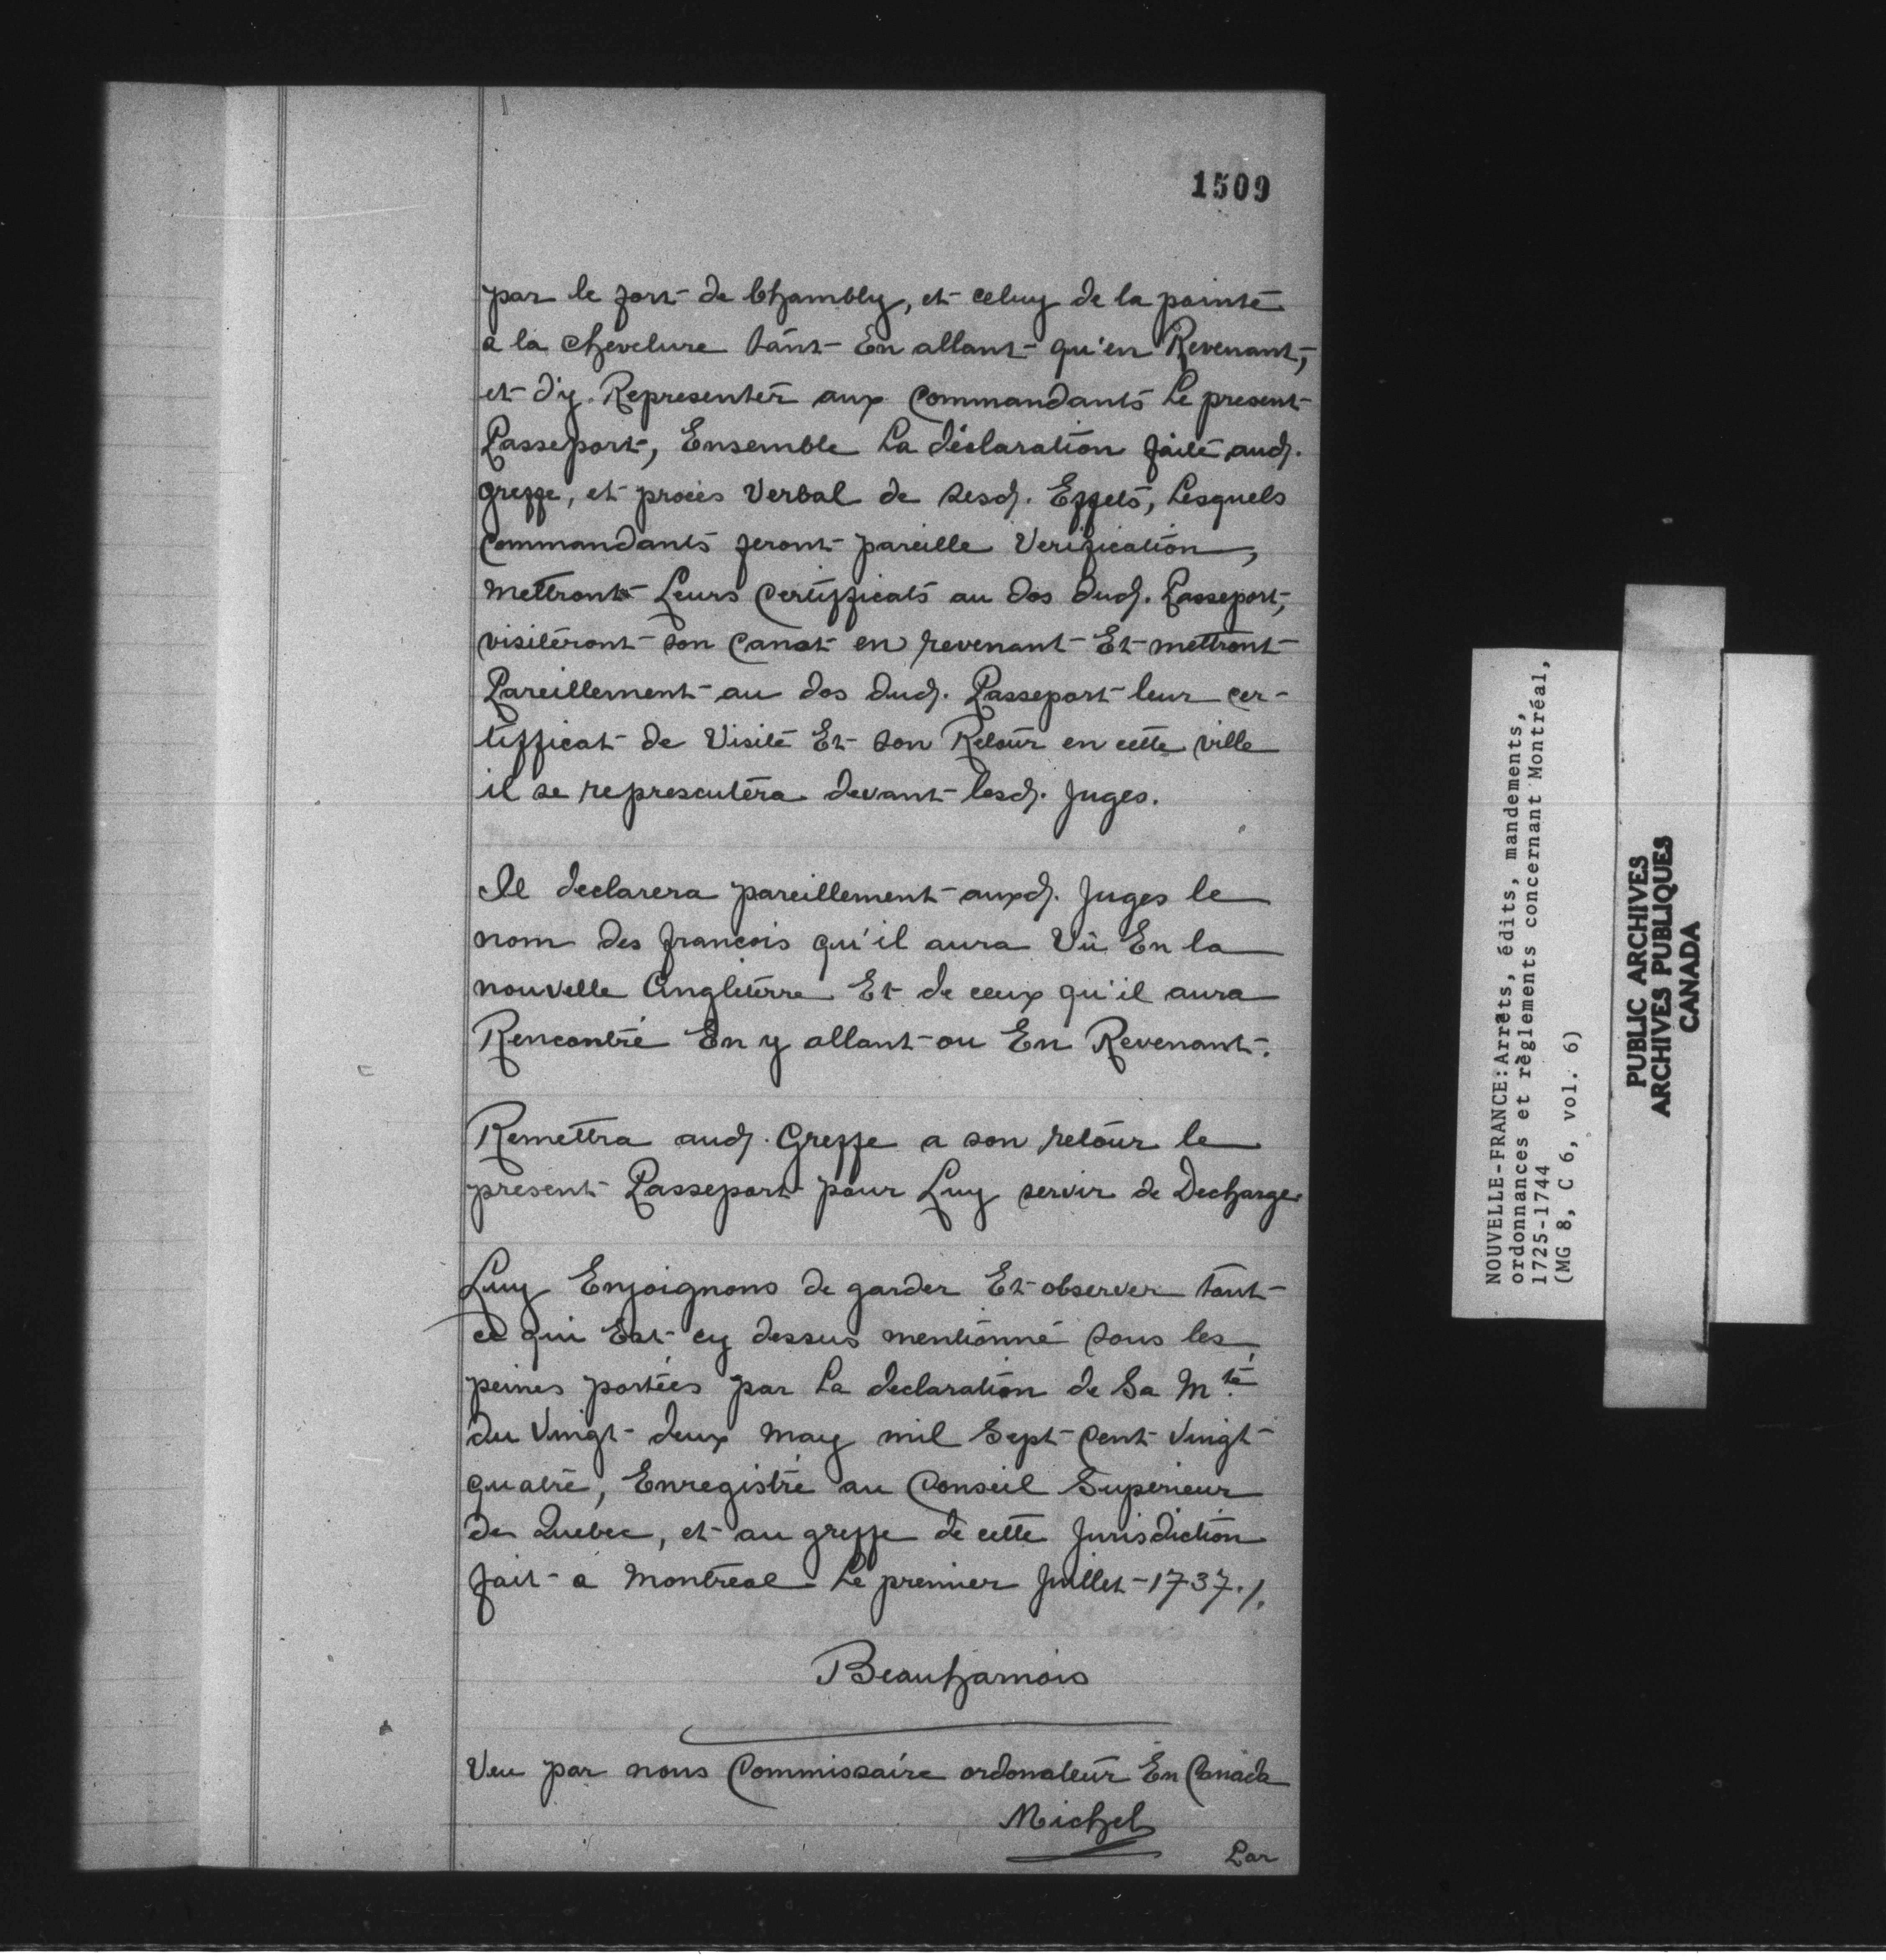 1509
par le fort de Chambly, et celuy de la pointe
a la chevelure tant En allant qu'en Revenant,
et d'y Representer aux Commandants Le present
Passeport, Ensemble La déclaration faite aud.
greffe, et procès Verbal de sesd. Effets, Lesquels
Commandants feront pareille Verification,
Mettront Leurs Certifficats au dos dud. Passeport,
visiteront son Canot en revenant Et mettront
Pareillement au dos dud. Passeport leur cer-
tifficat de Visite Et son Retour en cette ville
il se representera devant lesd. Juges.
Il declarera pareillement auxd. Juges le
nom des francois qu'il aura Vû En la
nouvelle Angleterre Et de ceux qu'il aura
Rencontré En y allant ou En Revenant.
Remettra aud. Greffe a son retour le
present Passeport pour Luy servir de Decharge.
Luy Enjoignons de garder Et observer tout
ce qui Est cy dessus mentionné sous les
peines portées par La declaration de Sa Mté
du Vingt deux may mil Sept Cent Vingt
quatre, Enregistré au Conseil Superieur
de Quebec, et au greffe de cette Jurisdiction
fait a Montreal Le premier Juillet 1737./.
Beauharnois
Veu par nous Commissaire ordonateur En Canada
Michel
Par
NOUVELLE-FRANCE:Arrêts, édits, mandements,
ordonnances et règlements concernant Montréal,
1725-1744
(MG 8, C 6, vol. 6)
PUBLIC ARCHIVES
ARCHIVES PUBLIQUES
CANADA